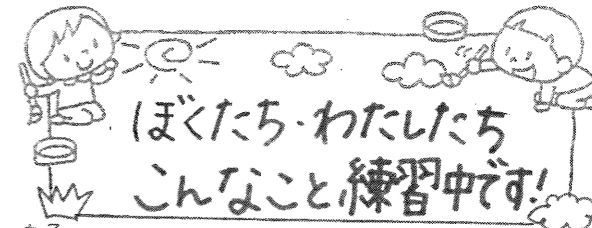 ぼくたち・わたしたち
こんなこと練習中です!